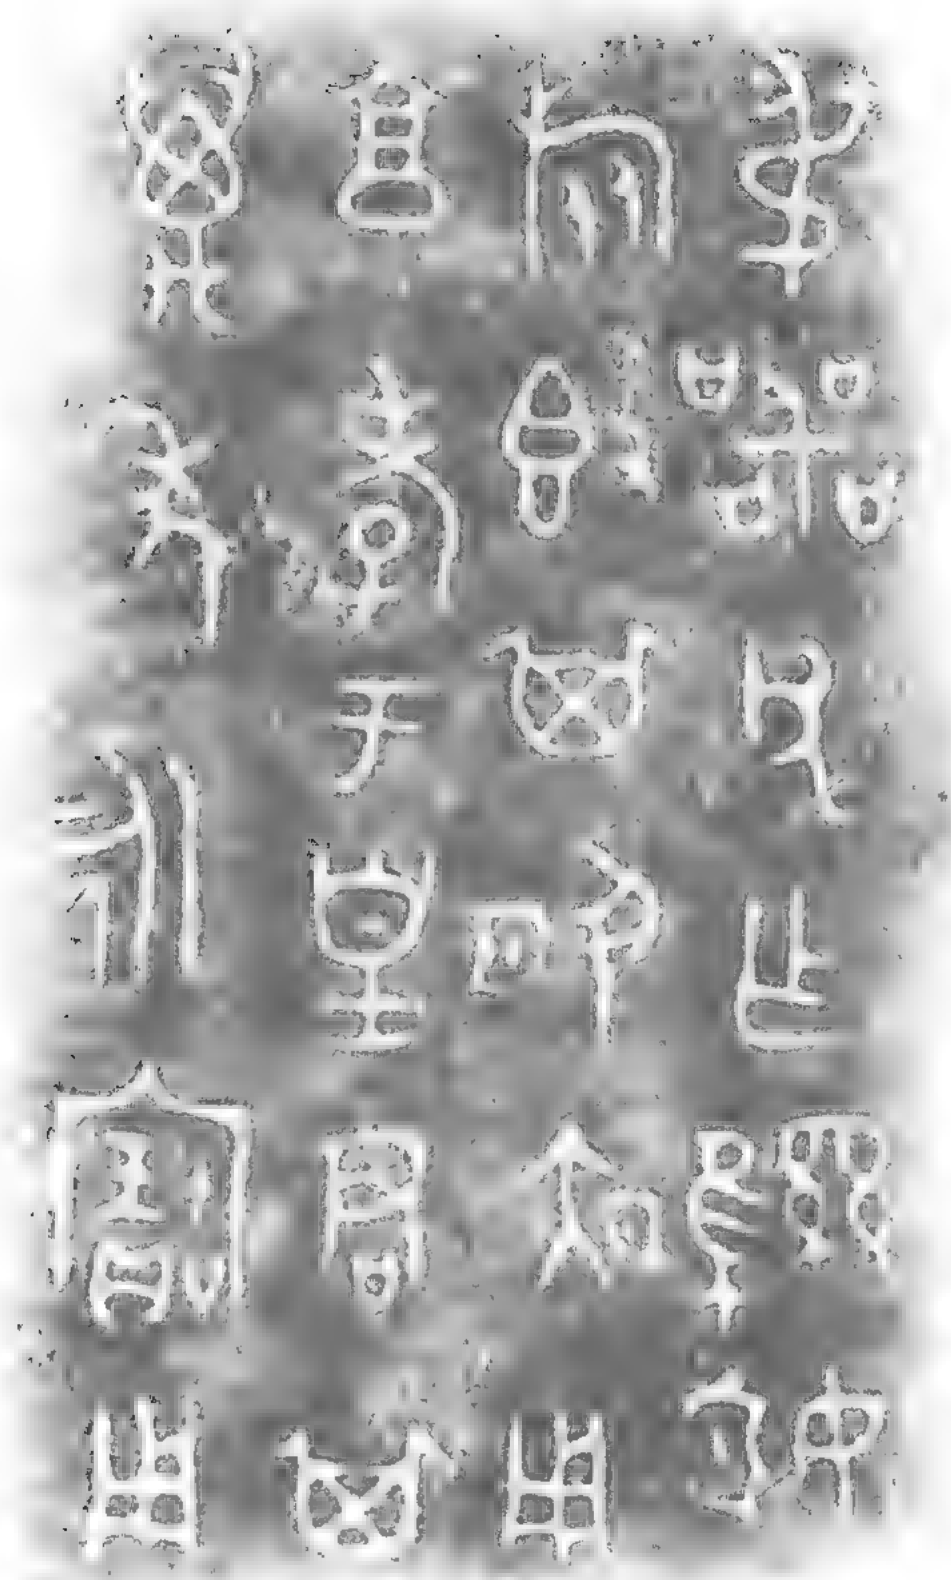 弔噩父乍𪔨姬
旅簋其夙夜用
享孝于皇君其
萬年永寶用